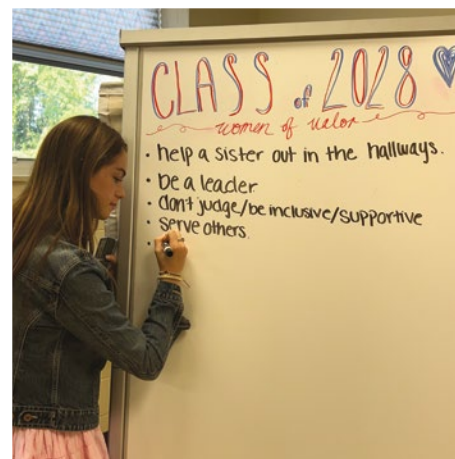 CLASS of 2028
women of valor
• help a sister out in the hallways.
• be a leader
• don't judge/be inclusive/supportive
• serve others.
•